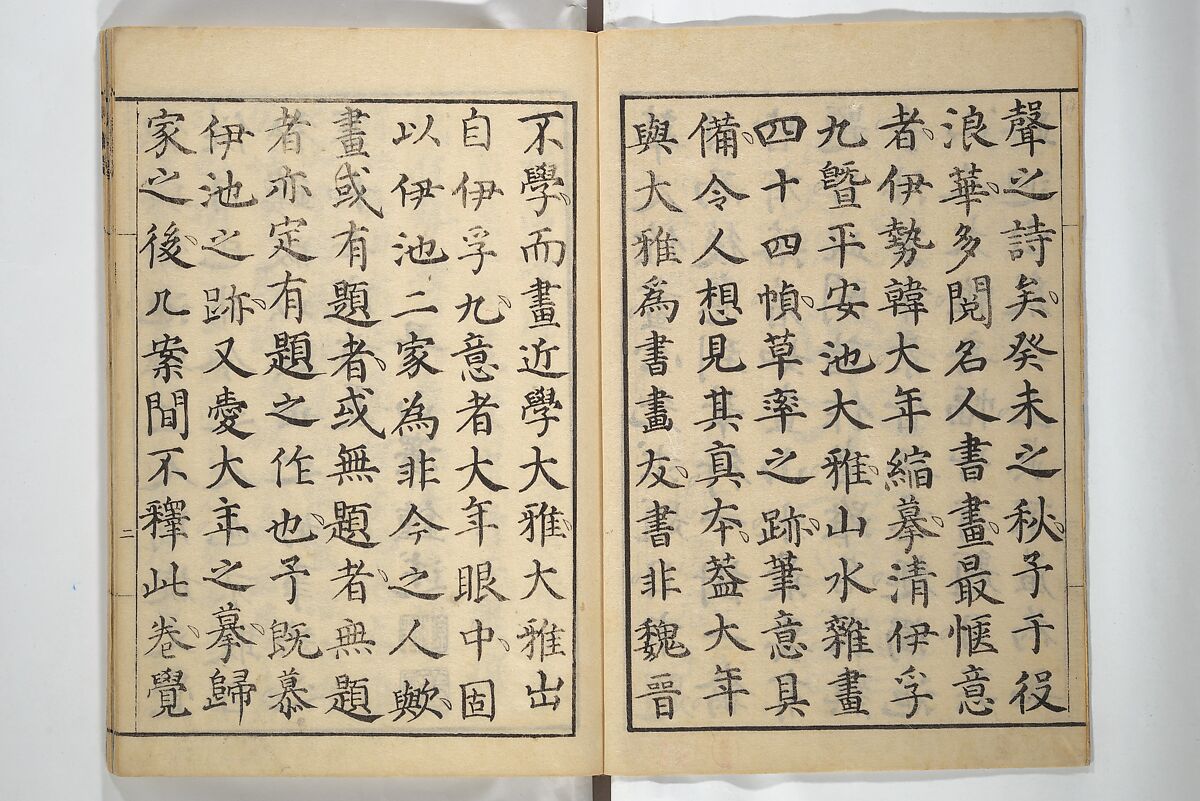 聲之詩矣癸未之秋予于役
浪華多閱名人書畫最愜意
者伊勢韓大年縮摹清伊孚
九曁平安池大雅山水雜畫
四十四幀草率之跡筆意具
備令人想見其真本葢大年
與大雅爲書畫友書非魏晋
不學而畫近學大雅大雅出
自伊孚九意者大年眼中固
以伊池二家為非今之人歟
畫或有題者或無題者無題
者亦定有題之作也予既慕
伊池之跡又愛大年之摹歸
家之後几案間不釋此卷覺
二